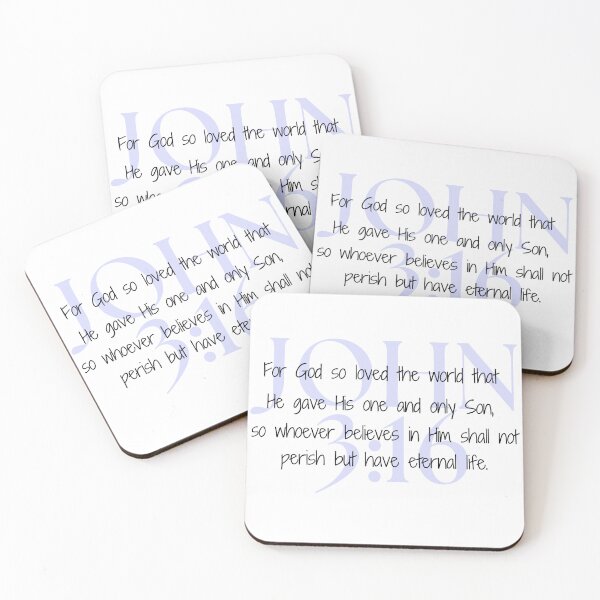 JOHN
For God so loved the world that
He gave His one and only
so Him
JOHN
3:16
For God so loved the world that
He gave His one and only Son,
so whoever believes in Him shall not
perish but have eternal life.
JOHN
3:16
For God so loved the world that
He gave His one and only Son,
so whoever believes in Him shall
perish but have
JOHN
3:16
For God so loved the world that
He gave His one and only Son,
so whoever believes in Him shall not
perish but have eternal life.